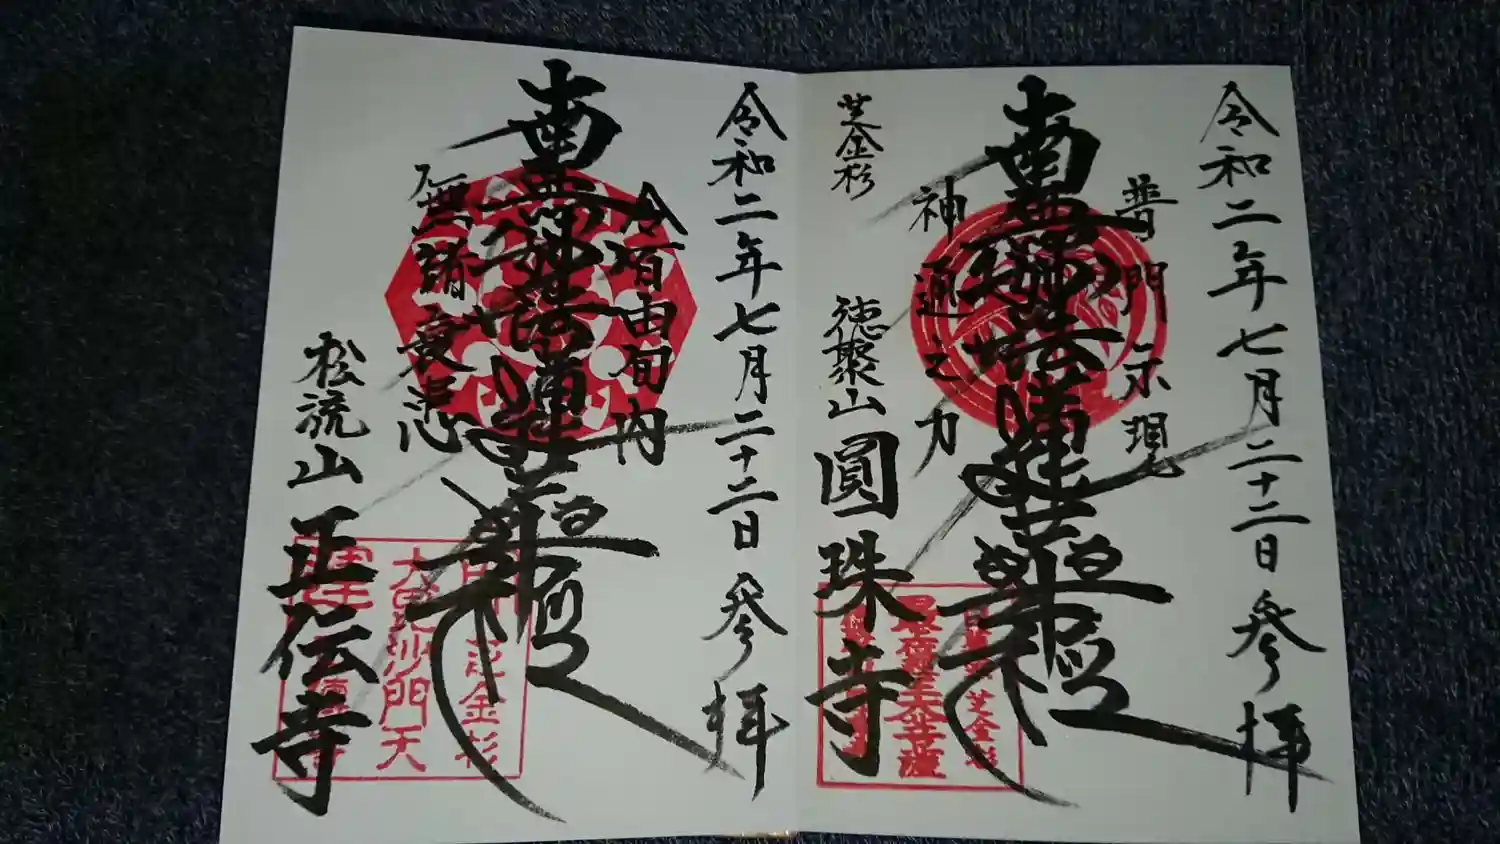 令和二年七月二十二日 参拝
普門示現
南無妙法蓮華経
神通之力
芝金杉
徳聚山 圓珠寺
芝金杉
令和二年七月二十二日 参拝
令百由旬内
南無妙法蓮華経
無諸衰患
松流山 正伝寺
芝金杉
大毘沙門天